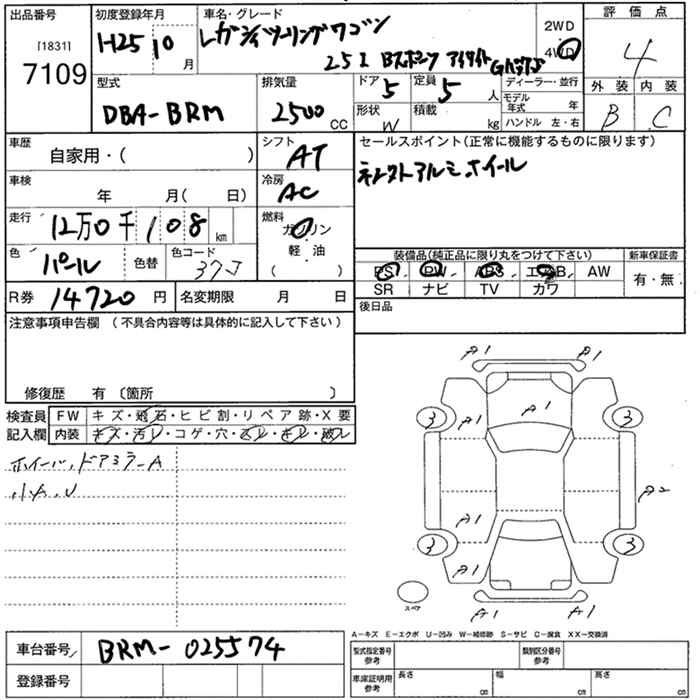 出品番号
[1831]
7109
初度登録年月
H25 10 月
車名・グレード
レガシィツーリングワゴン
2.5i Bスポーツ アイサイト Gパッケージ
2WD
4WD
評価点
4
外装 内装
B C
型式
DBA-BRM
排気量
2500 CC
ドア 5
定員 5 人
形状 W
積載 kg
ディーラー・並行
モデル年式 年
ハンドル 左・右
車歴
自家用・( )
シフト
AT
車検
年 月( 日)
冷房
AC
走行
12万0千108 km
燃料
ガソリン
軽・油
( )
色
パール
色替
色コード
37J
R券 14720 円
名変期限 月 日
セールスポイント(正常に機能するものに限ります)
アルミホイール
装備品(純正品に限り丸をつけて下さい)
新車保証書
PS PW ABS エアB AW
有・無
SR ナビ TV カワ
後日品
注意事項申告欄 (不具合内容等は具体的に記入して下さい)
修復歴 有 〔箇所 〕
検査員
記入欄
FW キズ・飛石・ヒビ割・リペア跡・X要
内装 キズ・汚レ・コゲ・穴・スレ・キレ・破レ
ホイール、ドアミラーA
小A、U
A1 A1
A1
3 A1 3
A2
A1
3 3
A1
A1 A1
スペア
A-キズ E-エクボ U-凹み W-補修跡 S-サビ C-腐食 XX-交換済
車台番号 BRM-025574
登録番号
型式指定番号
参考
類別区分番号
参考
車庫証明用
参考
長さ cm
幅 cm
高さ cm